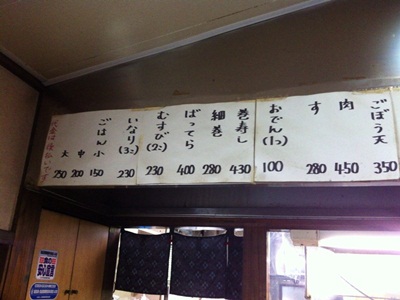 ごぼう天 350
肉 450
す 280
おでん(1つ) 100
巻寿し 430
細巻 280
ばってら 400
むすび(2コ) 230
いなり(3コ) 230
ごはん小 150
中 200
大 250